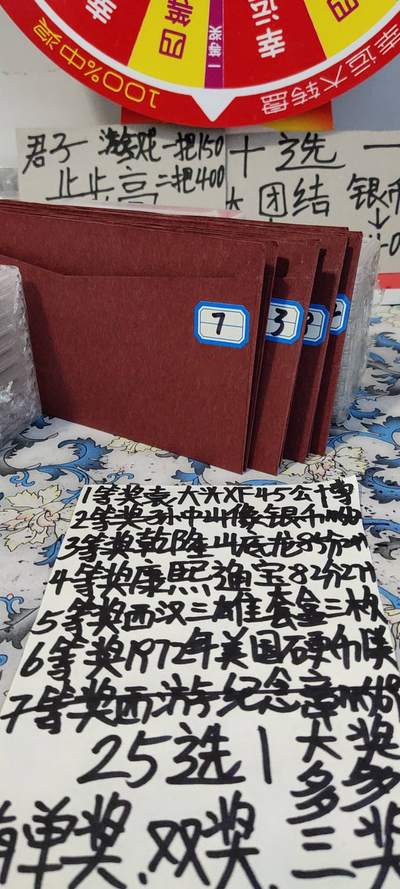 幸运
四
一等奖
幸运
四
100%中奖
幸运大转盘
君子 游戏一把150
步步高 二把400
十选一
团结 银币
7
3
1等奖袁大头XF45公博
2等奖孙中山像银币
3等奖乾隆山底龙85分
4等奖康熙通宝82分27
5等奖西汉三雄套盒三枚
6等奖1972年美国硬币
7等奖西游纪念章
25选1 大奖多多
单奖.双奖.三奖